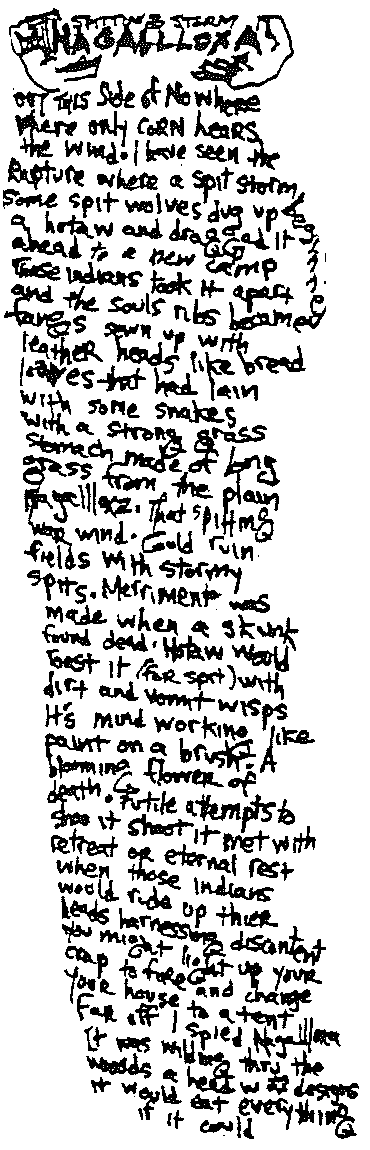 SPITTING STORM
NAGAFLLOXA
ON THIS Side of Nowhere
where only CORN hears
the wind. I have seen the
Rapture where a spit storm
Some spit wolves dug up
a hotaw and dragged it
ahead to a new camp
Those indians took it apart
and the souls ribs became
fangs sewn up with
leather heads like bread
loaves that had lain
with some snakes
with a strong grass
stomach made of long
grass from the plain
That spitting
war wind. Could ruin
fields with stormy
spits. Merriment was
made when a skunk
found dead. Hotaw would
toast it (for sport) with
dirt and vomit wisps
It's mind working like
paint on a brush. A
blooming flower of
death. Futile attempts to
shoot it shoot it met with
retreat or eternal rest
when those indians
would ride up thier
heads harnessing discontent
You might light up your
crap to forget
your house and change
to a tent
Far off I spied
It was milling thru the
woods a head w designs
it would eat everything
if it could